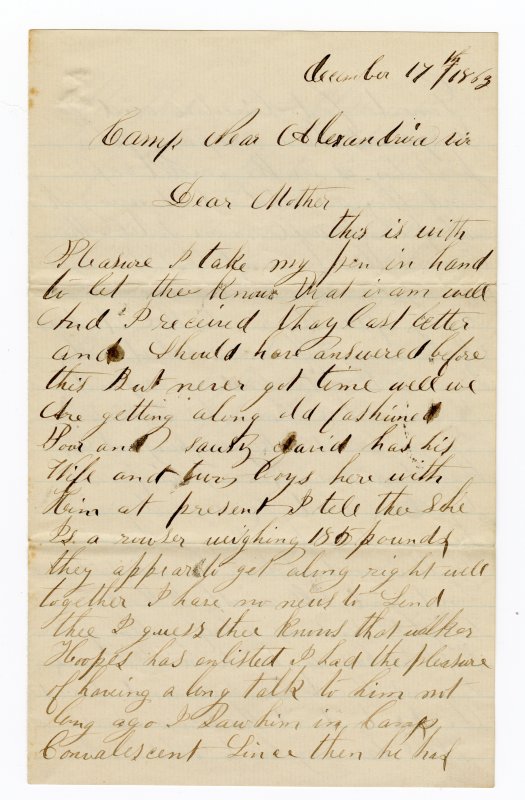 December 17th/1863
Camp Near Alexandria va
Dear Mother
this is with
Pleasure I take my pen in hand
to let thee know that i am well
And I received thay last letter
and Should have answered before
this But never got time well we
Are getting along old fashioned
Poor and sausy david has his
Wife and two boys here with
Him at present I tell thee She
Is a rowser weighing 185 pounds
they appear to get along right well
together I have no news to Send
thee I guess thee knows that walker
Hoopes has enlisted I had the pleasure
of having a long talk to him not
long ago I Saw him in Camp
Convalescent Since then he had